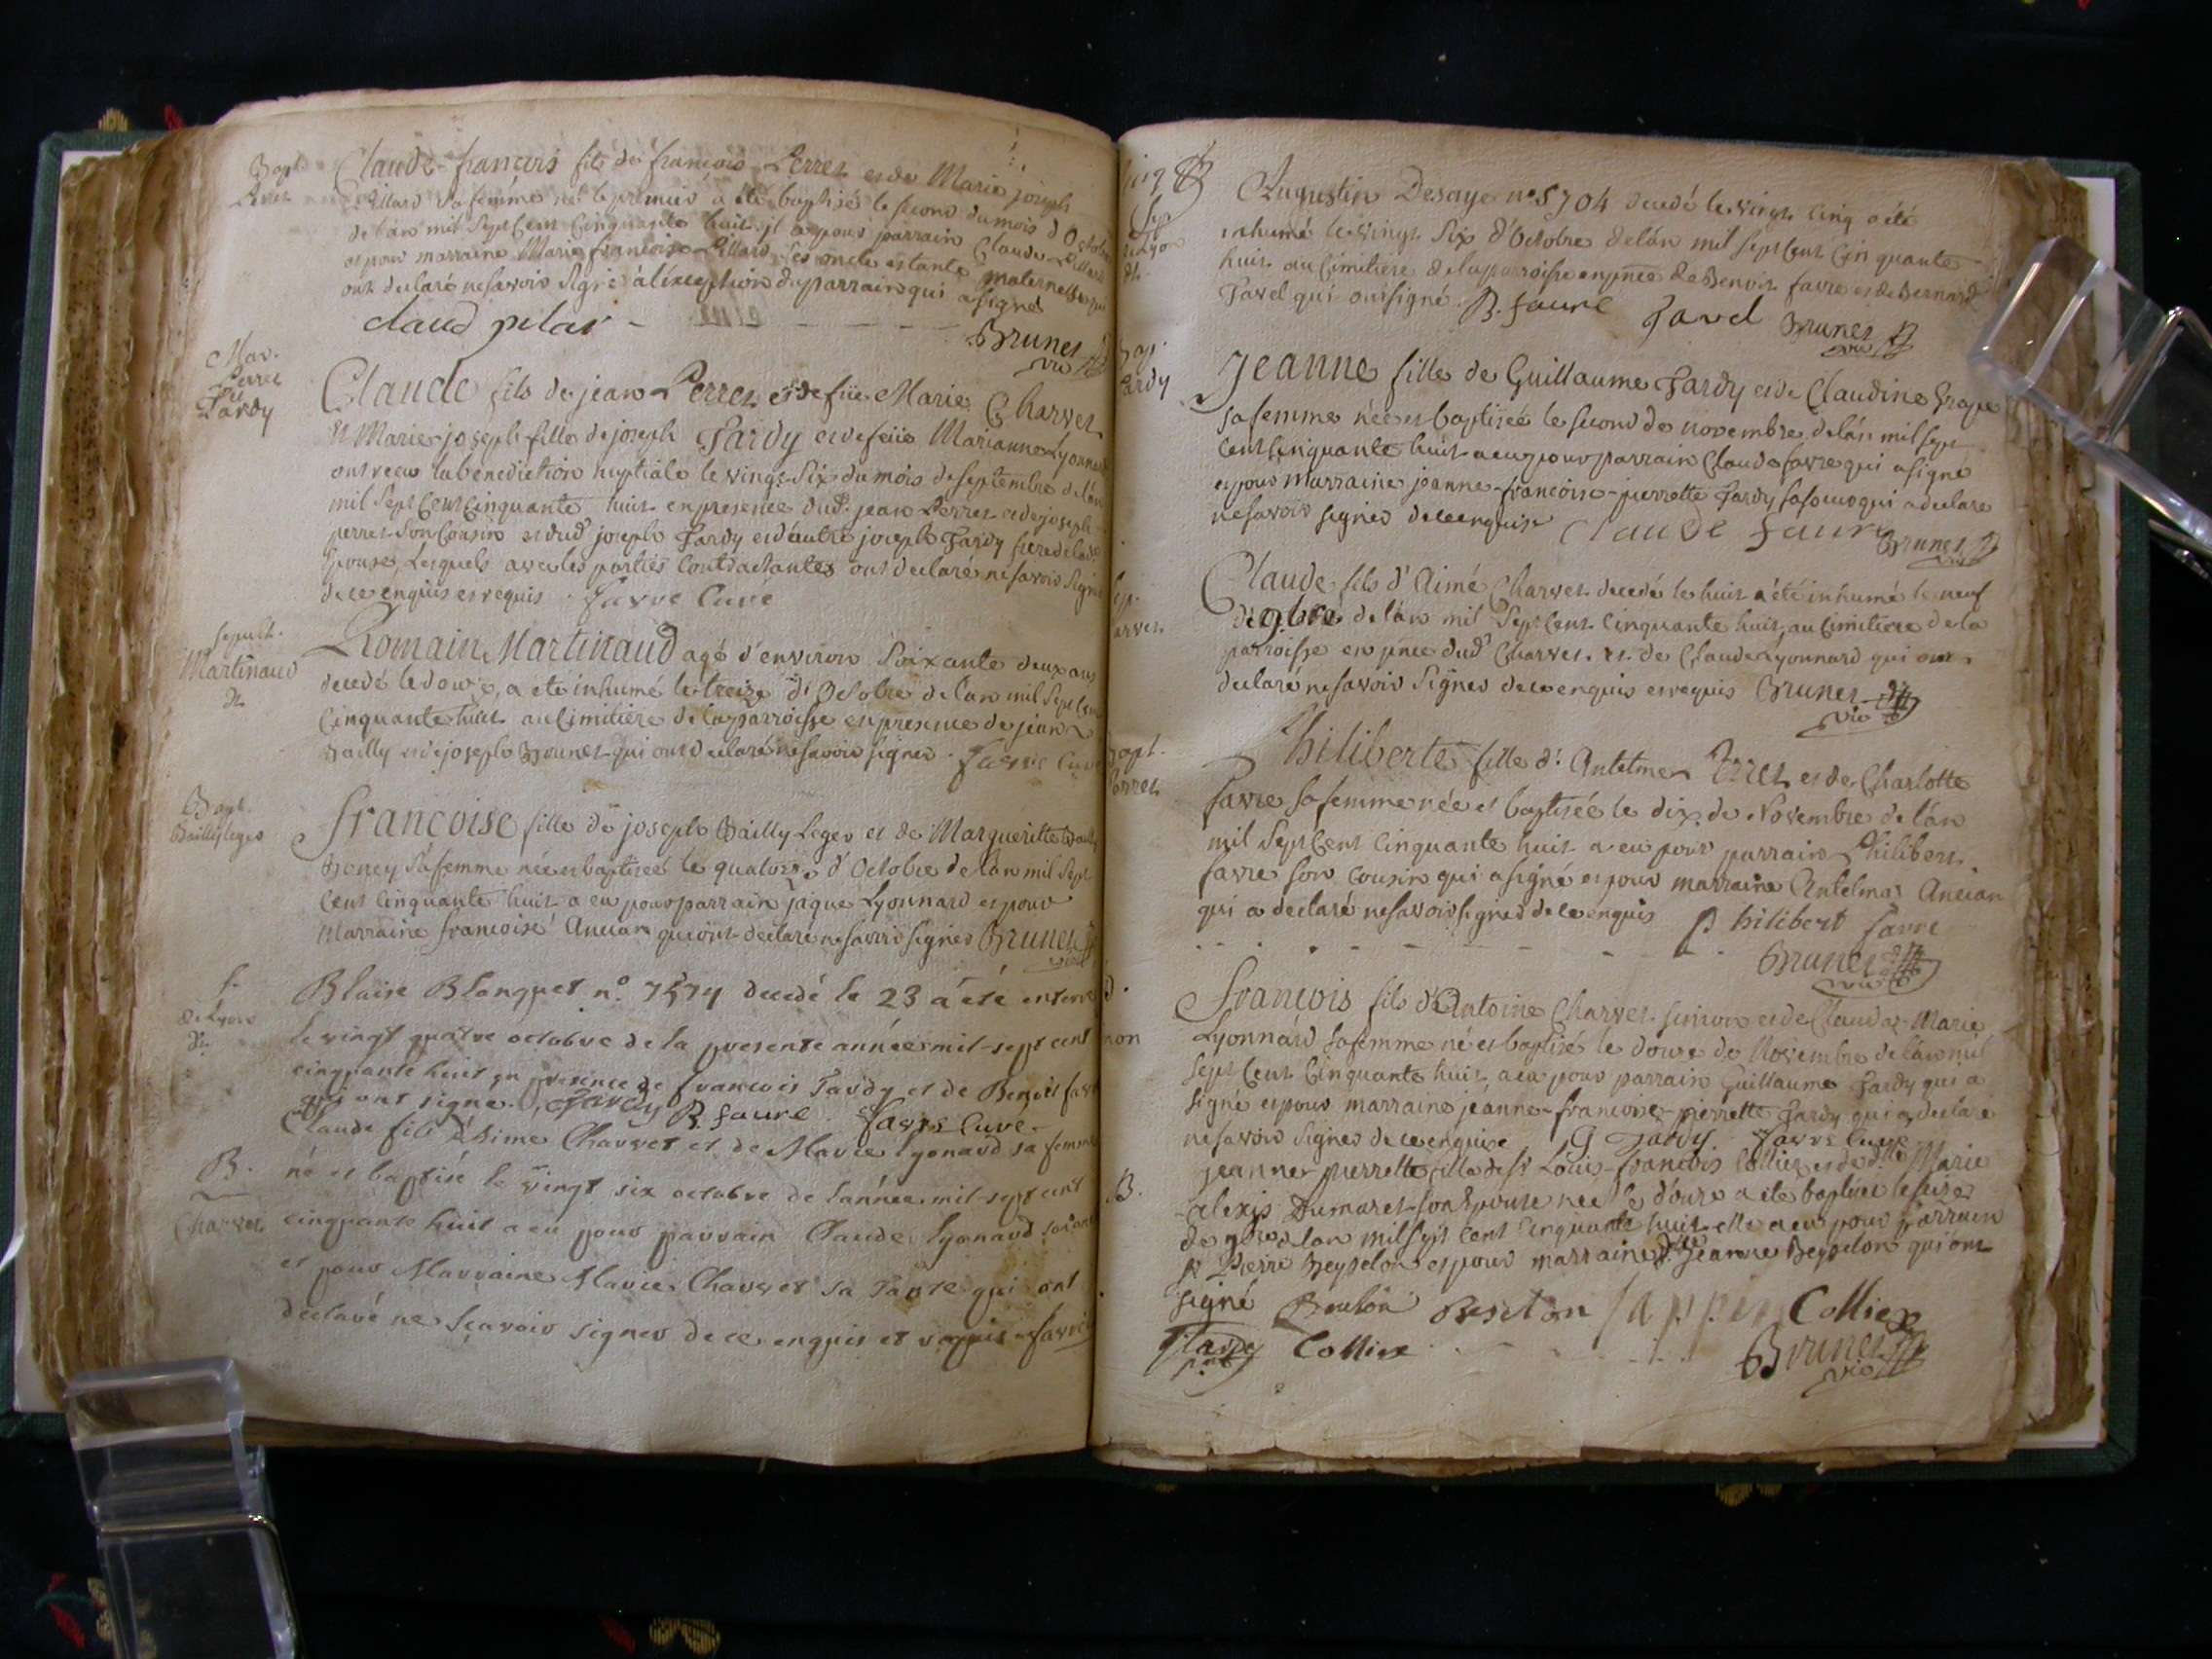 Bapt.
Perret
Claude-françois fils de françois Perret et de Marie joseph
Pillard sa femme né le premier a été baptisé le second du mois d'Octobre
de l'an mil Sept Cent Cinquante huit il a eu pour parrain Claude Pillard
et pour marraine Marie francoise Pillard ses oncle et tante maternelle qui
ont declaré ne savoir signé à l'exception du parrain qui a signé
claud pelar
Brunet
vic
Mar.
Perret
et
Tardy
Claude fils de jean Perret et de füe Marie Charvet
Et Marie-joseph fille de joseph Tardy et de feüe Marianne Lyonnard
ont recu la benediction nuptiale le vingt-Six du mois de septembre de l'an
mil Sept Cent Cinquante huit en presence dud. jean Perret et de joseph
perret Son Cousin et dud. joseph Tardy et d'autre joseph Tardy frere de lad.
Epouse, Lesquels avec les parties Contractantes ont declaré ne savoir Signer
de ce enquis et requis Favre Curé
sepult.
Martinaud
Romain Martinaud agé d'environ Soixante deux ans
decedé le douze, a été inhumé le treize d'Octobre de l'an mil Sept Cent
Cinquante huit au Cimitiere de la parroisse en presence de jean
Bailly et de joseph Brunet qui ont declaré ne savoir signer. Favre Curé
Bapt.
Bailly leger
francoise fille de joseph Bailly Leger et de Margueritte Bailly
sa femme née et baptisée le quatorze d'Octobre de l'an mil Sept
Cent Cinquante huit a eu pour parrain jaque Lyonnard et pour
Marraine francoise Ancian qui ont declaré ne savoir signer Brunet
vic
S.
de Lyon
Blaise Blanquet n.º 7574 decedé le 23 a été enterré
le vingt quatre octobre de la presente année mil-sept cent
cinquante huit en presence de francois Tardy et de Benoit favre
qui ont signe. Tardy B. faure. Favre Curé.
B.
Charvet
Claude fils d'Aime Charvet et de Marie lyonard sa femme
né et baptisé le vingt six octobre de l'année mil-sept cent
cinquante huit a eu pour parrain Claude lyonard
et pour Marraine Marie Charvet sa Tante qui ont
declaré ne sçavoir signer de ce enquis et requis Favre
Sep
de Lyon
Augustin Desaye nº 5704 decedé le vingt cinq a été
inhumé le vingt Six d'Octobre de l'an mil sept cent Cinquante
huit au Cimitiere de la parroisse en pnce de Benoit favre et de Bernard
Favel qui ont signé. B. faure Favel Brunet
vic
Bap.
Tardy
Jeanne fille de Guillaume Tardy et de Claudine
sa femme née et baptisée le second de novembre de l'an mil sept
cent Cinquante huit a eu pour parrain Claude favre qui a signé
et pour marraine jeanne-francoise-pierrette Tardy sa soeur qui a declaré
ne savoir signer de ce enquise Claude faure
Brunet
vic
Sep.
Charvet
Claude fils d'Aimé Charvet decedé le huit a été inhumé le neuf
de 9bre de l'an mil Sept Cent Cinquante huit au Cimitiere de la
parroisse en pnce dud. Charvet et de Claude Lyonnard qui ont
declaré ne savoir Signer de ce enquis et requis Brunet
vic
Bapt.
Perret
Philiberte fille d'Antelme Perret et de Charlotte
favre sa femme née et baptisée le dix de Novembre de l'an
mil Sept Cent Cinquante huit a eu pour parrain Philibert
favre son Cousin qui a signé et pour marraine Antelma Ancian
qui a declaré ne savoir signer de ce enquis Philibert favre
Brunet
vic
francois fils d'Antoine Charvet et de Claudaz-Marie
Lyonnard sa femme né et baptisé le douze de Novembre de l'an mil
Sept Cent Cinquante huit a eu pour parrain Guillaume Tardy qui a
signé et pour marraine jeanne-francoise-pierrette Tardy qui a declaré
ne savoir Signer de ce enquise G Tardy Favre Curé
B.
jeanne-pierrette fille de Sr Louis-francois Colliex et de dlle Marie
alexis Dumaret son Epouse née le douze a été baptisée le seize
de 9bre de l'an mil Sept Cent Cinquante huit elle a eu pour parrain
sr Pierre Beyselon et pour marraine dlle Jeanne Beyselon qui ont
signé Colliex
Collier
Brunet
vic